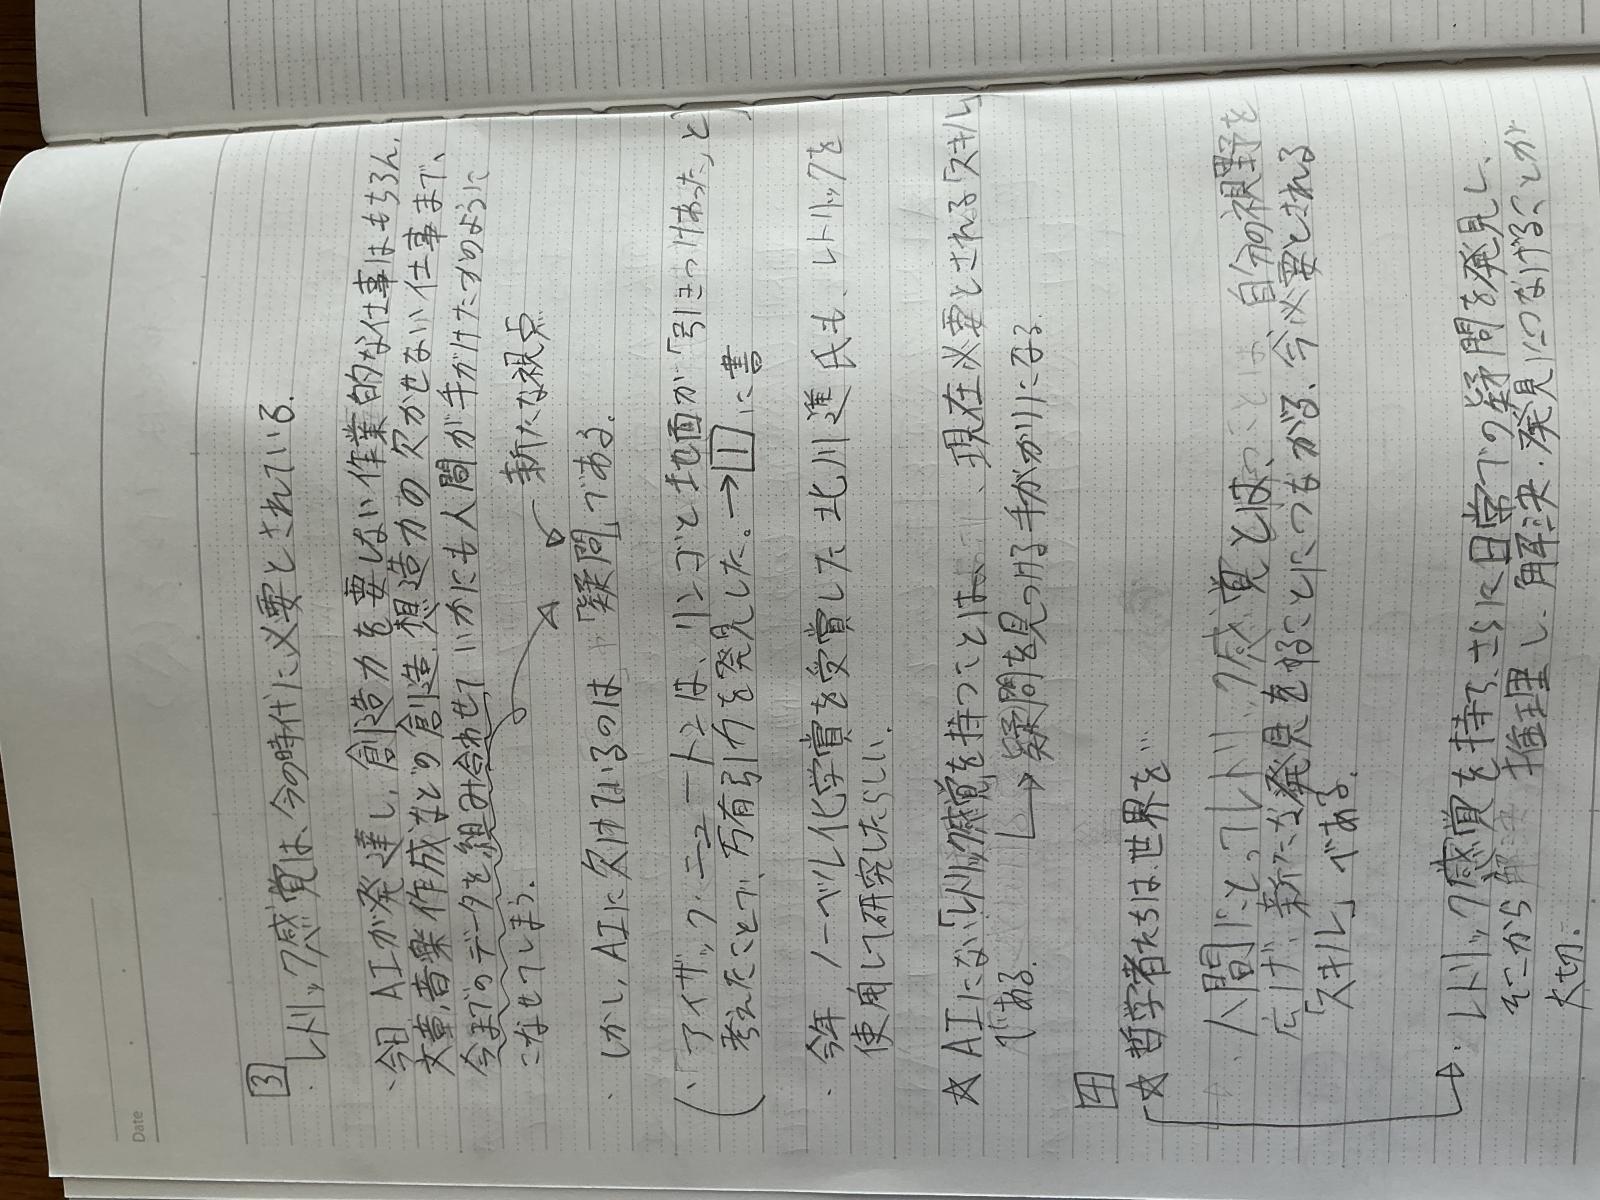 Date
3
・レトリック感覚は、今の時代に必要とされている。
・今日 AIが発達し、創造力を要しない作業的な仕事はもちろん、
文章、音楽作成などの創造、想造力の欠かせない仕事まで、
今までのデータを組み合わせて、いかにも人間が手がけたかのように
こなせてしまう。
新たな視点
・しかし、AIに欠けているのは「疑問」である。
(・「アイザック・ニュートンは、リンゴと地面が「引きつけあった」と
考えたことで、万有引力を発見した。→1に書
・今年 ノーベル化学賞を受賞した北川進氏も、レトリックを
使用して研究したらしい。
☆AIにない「レトリック感覚」を持つことは、現在必要とされる「スキル」
である。
→疑問を見つける手がかりになる。
4
☆哲学者たちは世界を…
・人間にとってレトリック感覚とは、自分の視野を
広げ、新たな発見をすることにつながる、今必要とされる
「スキル」である。
→・レトリック感覚を持ち、さらに日常での疑問を発見し、
そこから 推理し、解決・発見につなげることが
大切。